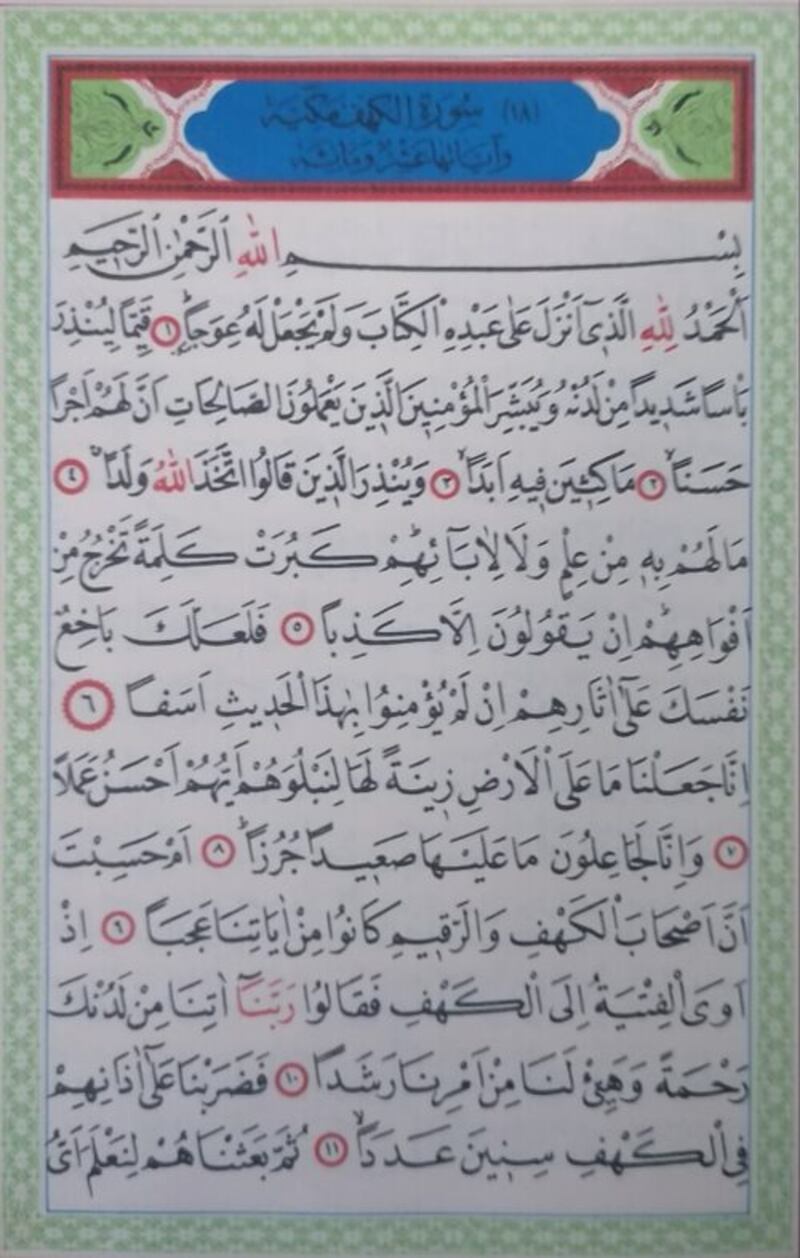 (١٨) سُورَةُ الْكَهْفِ مَكِّيَّةٌ
وَاٰيَاتُهَا عَشْرٌ وَمِائَةٌ
بِسْمِ اللّٰهِ الرَّحْمٰنِ الرَّحٖيمِ
اَلْحَمْدُ لِلّٰهِ الَّذٖٓى اَنْزَلَ عَلٰى عَبْدِهِ الْكِتَابَ وَلَمْ يَجْعَلْ لَهُ عِوَجاًؕ ١ قَيِّماً لِيُنْذِرَ
بَاْساً شَدٖيداً مِنْ لَدُنْهُ وَيُبَشِّرَ الْمُؤْمِنٖينَ الَّذٖينَ يَعْمَلُونَ الصَّالِحَاتِ اَنَّ لَهُمْ اَجْراً
حَسَناًۙ ٢ مَاكِثٖينَ فٖيهِ اَبَداًۙ ٣ وَيُنْذِرَ الَّذٖينَ قَالُوا اتَّخَذَ اللّٰهُ وَلَداًۗ ٤
مَا لَهُمْ بِهٖ مِنْ عِلْمٍ وَلَا لِاٰبَٓائِهِمْؕ كَبُرَتْ كَلِمَةً تَخْرُجُ مِنْ
اَفْوَاهِهِمْؕ اِنْ يَقُولُونَ اِلَّا كَذِباً ٥ فَلَعَلَّكَ بَاخِعٌ
نَفْسَكَ عَلٰٓى اٰثَارِهِمْ اِنْ لَمْ يُؤْمِنُوا بِهٰذَا الْحَدٖيثِ اَسَفاً ٦
اِنَّا جَعَلْنَا مَا عَلَى الْاَرْضِ زٖينَةً لَهَا لِنَبْلُوَهُمْ اَيُّهُمْ اَحْسَنُ عَمَلاً
٧ وَاِنَّا لَجَاعِلُونَ مَا عَلَيْهَا صَعٖيداً جُرُزاًؕ ٨ اَمْ حَسِبْتَ
اَنَّ اَصْحَابَ الْكَهْفِ وَالرَّقٖيمِ كَانُوا مِنْ اٰيَاتِنَا عَجَباً ٩ اِذْ
اَوَى الْفِتْيَةُ اِلَى الْكَهْفِ فَقَالُوا رَبَّنَٓا اٰتِنَا مِنْ لَدُنْكَ
رَحْمَةً وَهَيِّئْ لَنَا مِنْ اَمْرِنَا رَشَداً ١٠ فَضَرَبْنَا عَلٰٓى اٰذَانِهِمْ
فِى الْكَهْفِ سِنٖينَ عَدَداًۙ ١١ ثُمَّ بَعَثْنَاهُمْ لِنَعْلَمَ اَىُّ